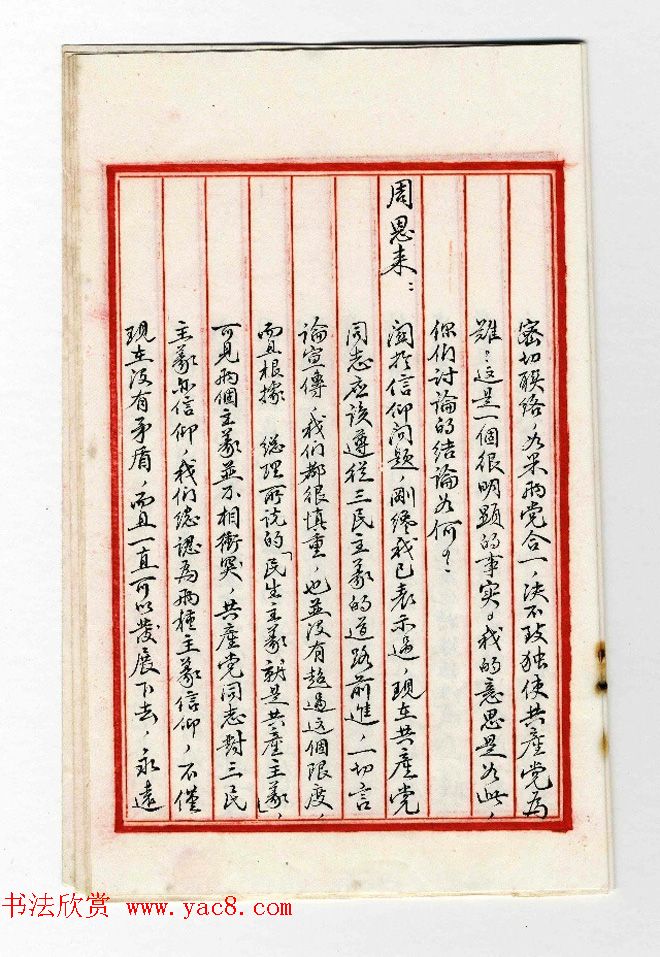 密切联络，如果两党合一，决不致独使共產党為
难？這是一個很明顯的事实。我的意思是如此，
你们讨论的结论如何？
周恩来：
関於信仰问题，刚纔我已表示過，现在共產党
同志应该遵從三民主義的道路前進，一切言
论宣傳，我们都很慎重，也並没有超過这個限度，
而且根據 總理所说的「民生主義就是共產主義」，
可见两個主義並不相衝突，共產党同志對三民
主義亦信仰，我们總認為两種主義信仰，不僅
现在没有矛盾，而且一直可以發展下去，永遠
书法欣赏 www.yac8.com